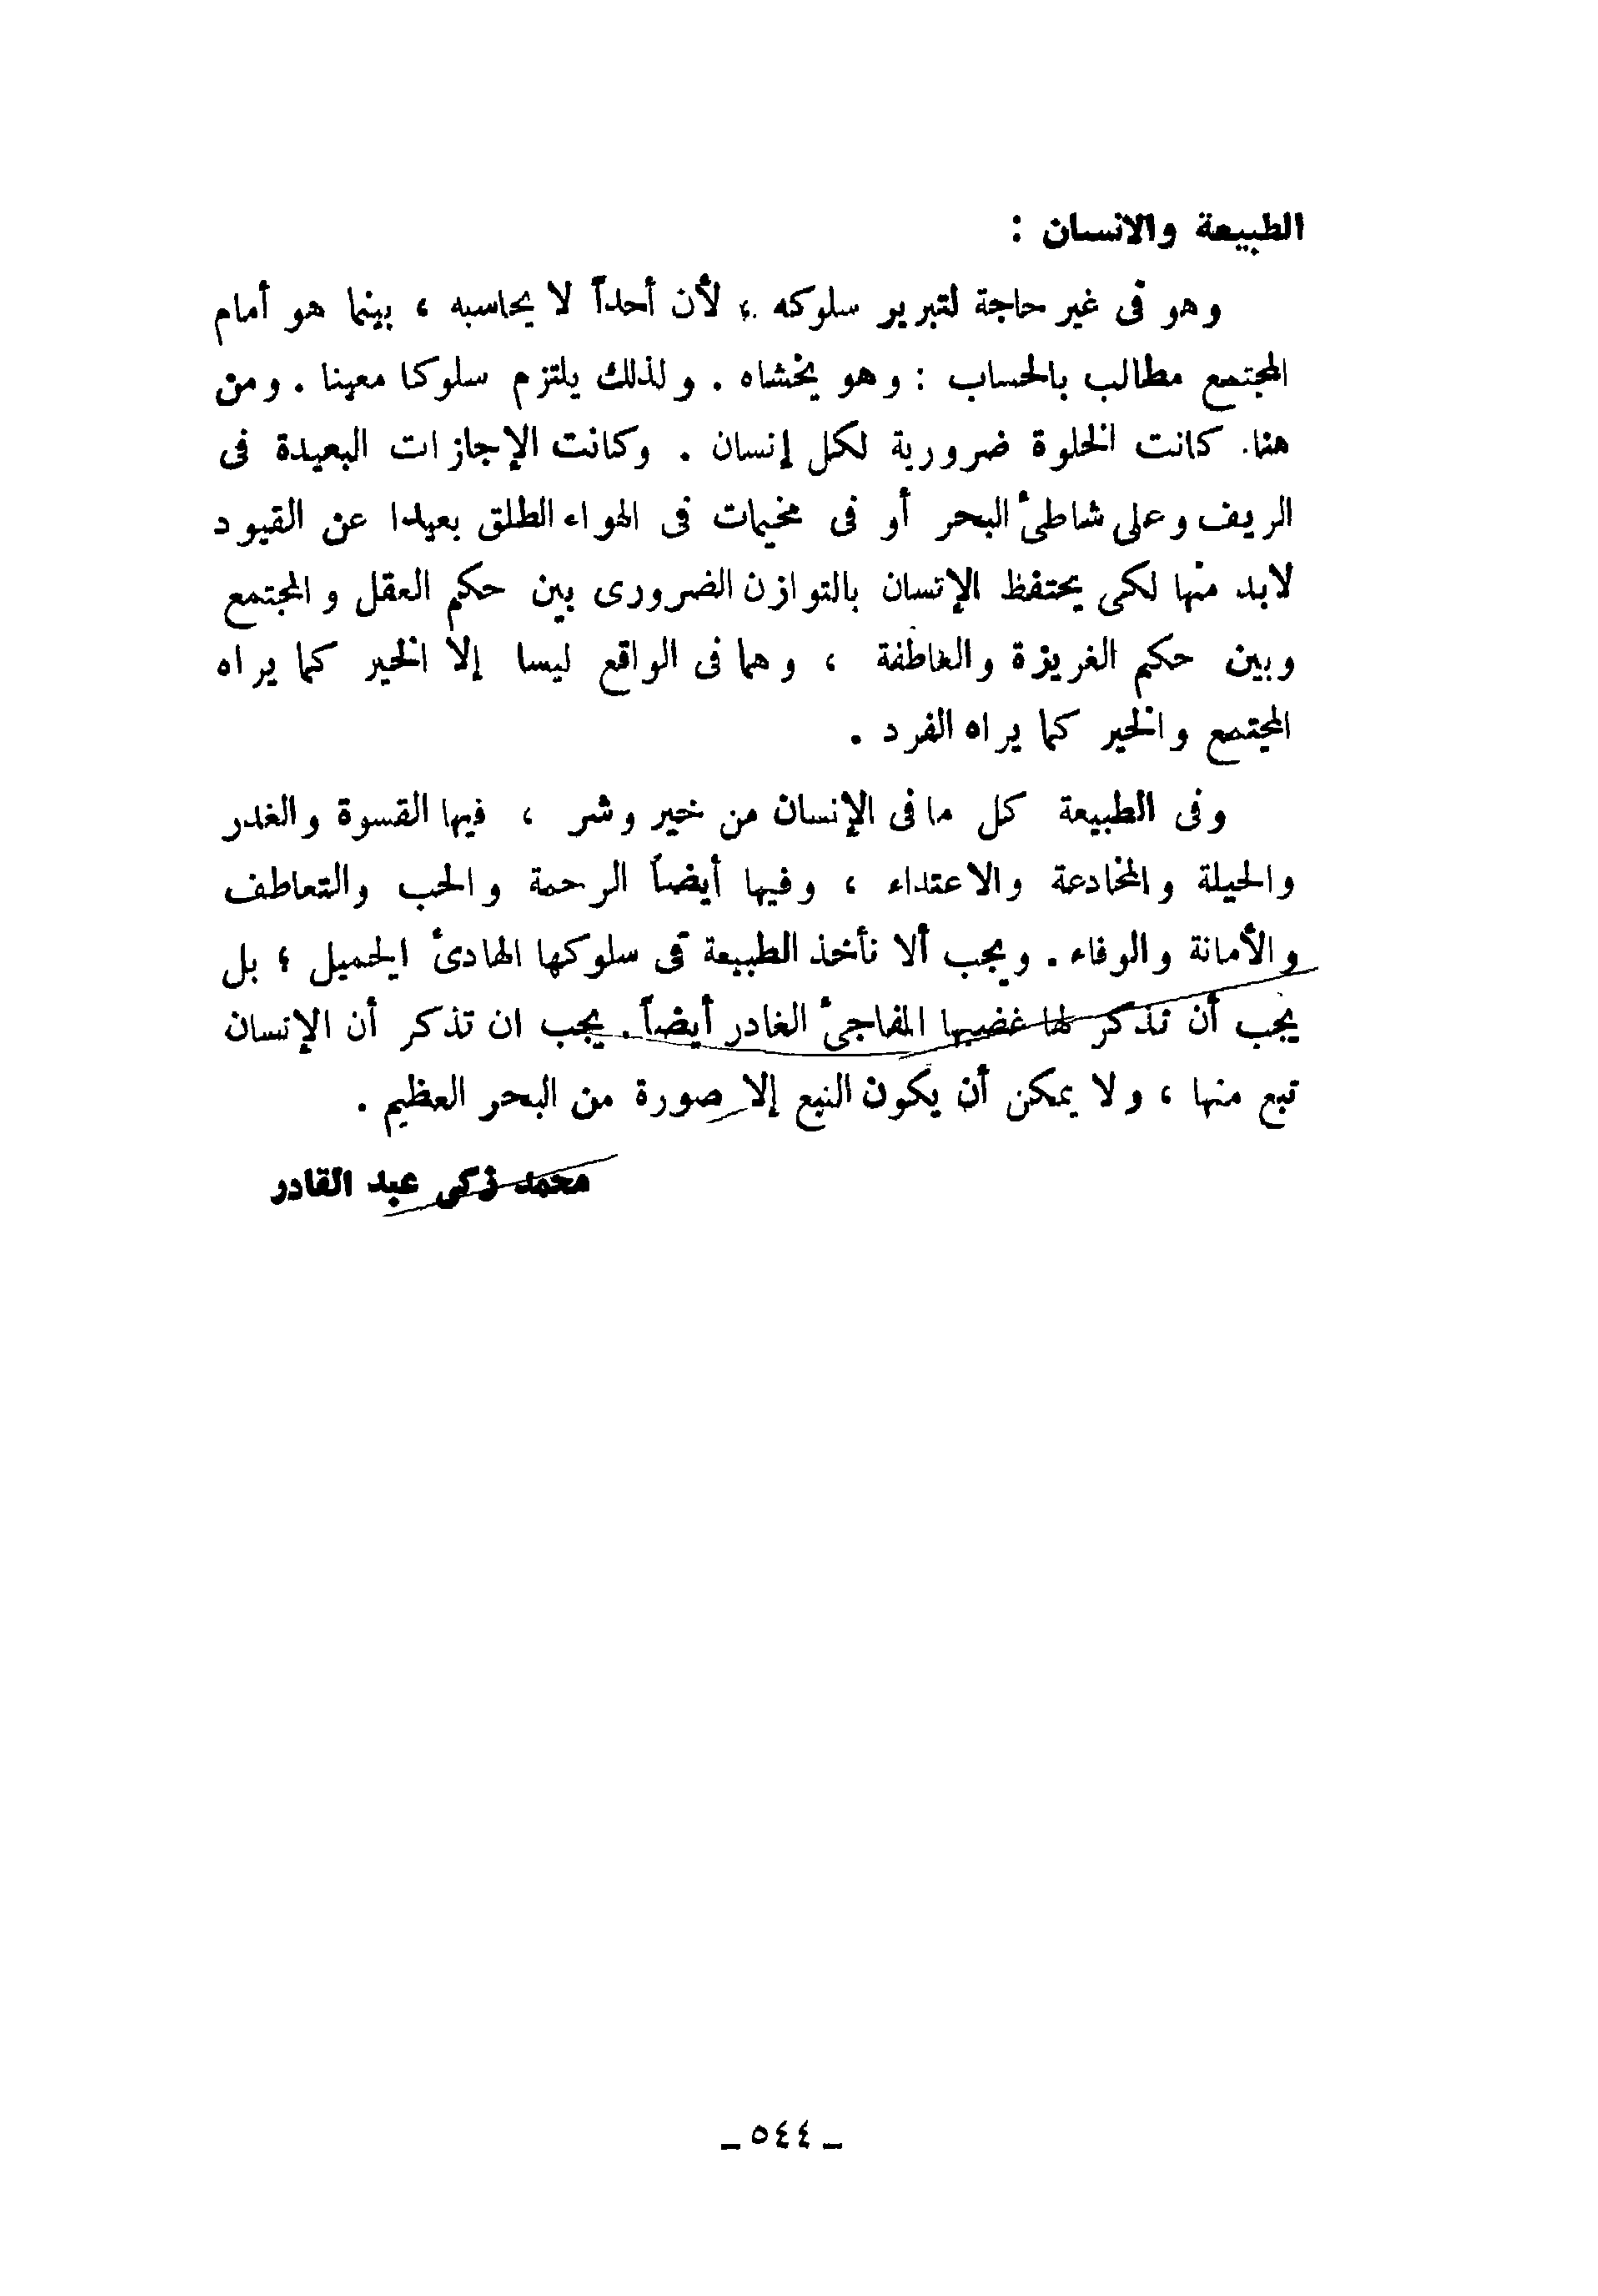 الطبيعة والانسان :
وهو فى غير حاجة لتبرير سلوكه ؛ لأن أحداً لا يحاسبه ، بينما هو أمام
المجتمع مطالب بالحساب : وهو يخشاه . ولذلك يلتزم سلوكا معينا . ومن
هنا. كانت الخلوة ضرورية لكل إنسان . وكانت الإجازات البعيدة فى
الريف وعلى شاطئ البحر أو فى مخيمات فى الهواء الطلق بعيدا عن القيود
لابد منها لكى يحتفظ الإنسان بالتوازن الضرورى بين حكم العقل والمجتمع
وبين حكم الغريزة والعاطفة ، وهما فى الواقع ليسا إلا الخير كما يراه
المجتمع والخير كما يراه الفرد .
وفى الطبيعة كل ما فى الإنسان من خير وشر ، فيها القسوة والغدر
والحيلة والمخادعة والاعتداء ، وفيها أيضاً الرحمة والحب والتعاطف
والأمانة والوفاء . ويجب ألا نأخذ الطبيعة فى سلوكها الهادئ الجميل ؛ بل
يجب أن نذكر لها غضبها المفاجئ الغادر أيضاً . يجب ان تذكر أن الإنسان
نبع منها ، ولا يمكن أن يكون النبع إلا صورة من البحر العظيم .
محمد زكى عبد القادر
ـ ٥٤٤ ـ